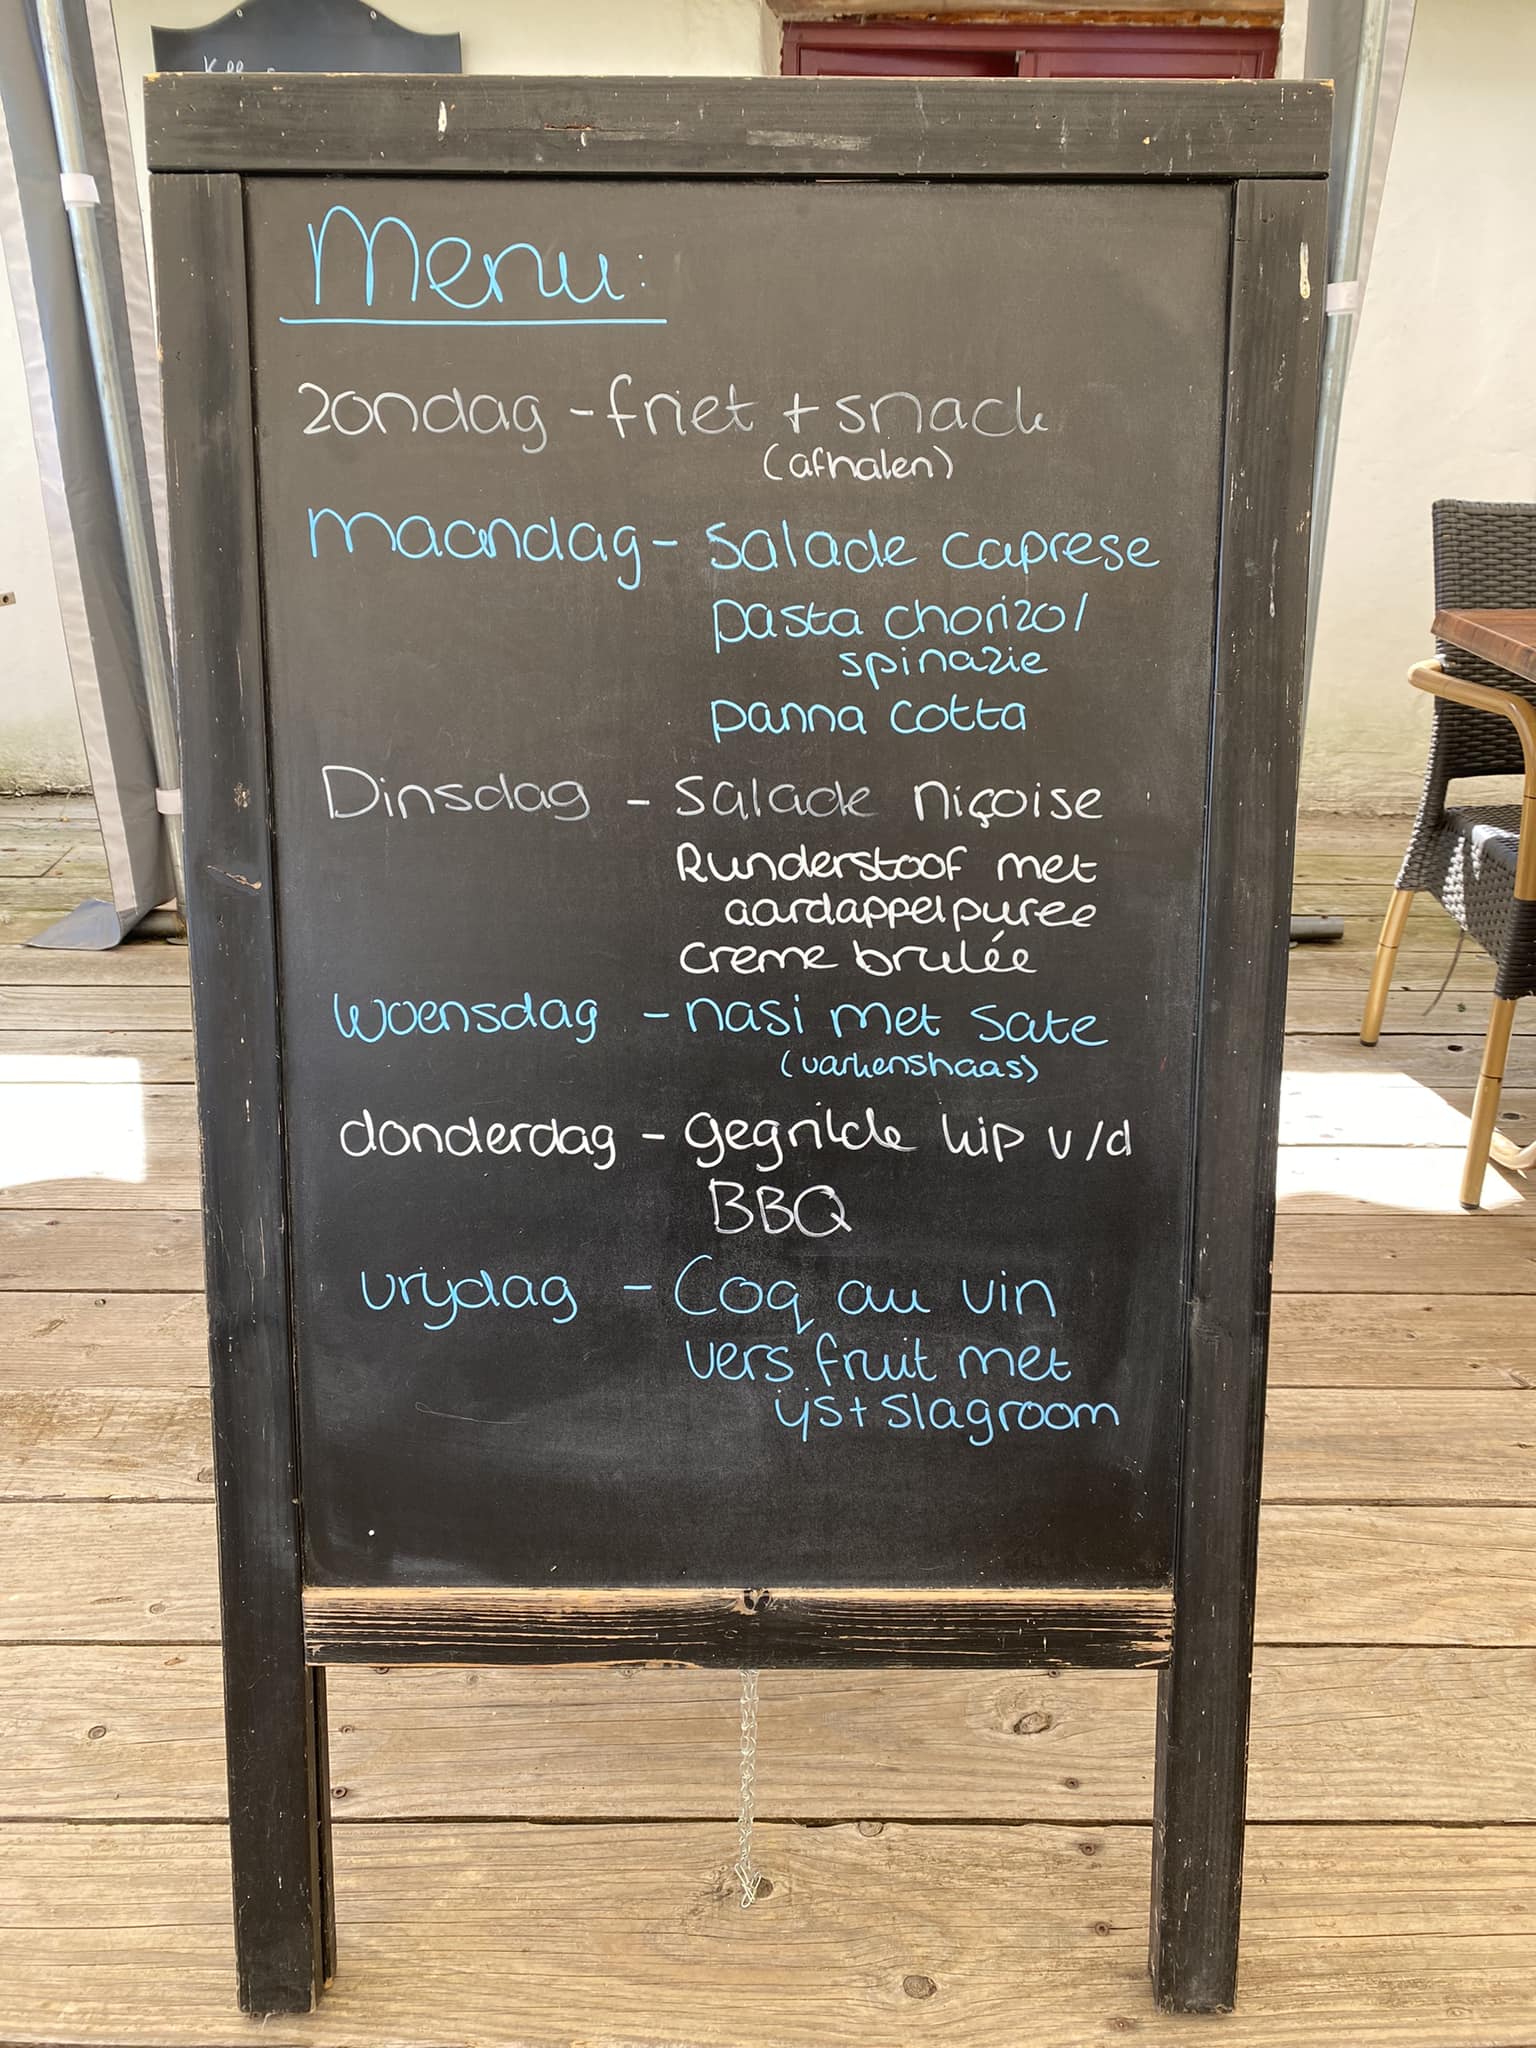 Menu:
zondag - friet + snack
(afhalen)
maandag - Salade caprese
pasta chorizo/
spinazie
panna cotta
Dinsdag - Salade niçoise
Runderstoof met
aardappelpuree
creme brulée
woensdag - nasi met sate
(varkenshaas)
donderdag - gegrilde kip v/d
BBQ
vrijdag - Coq au vin
vers fruit met
ijs + slagroom